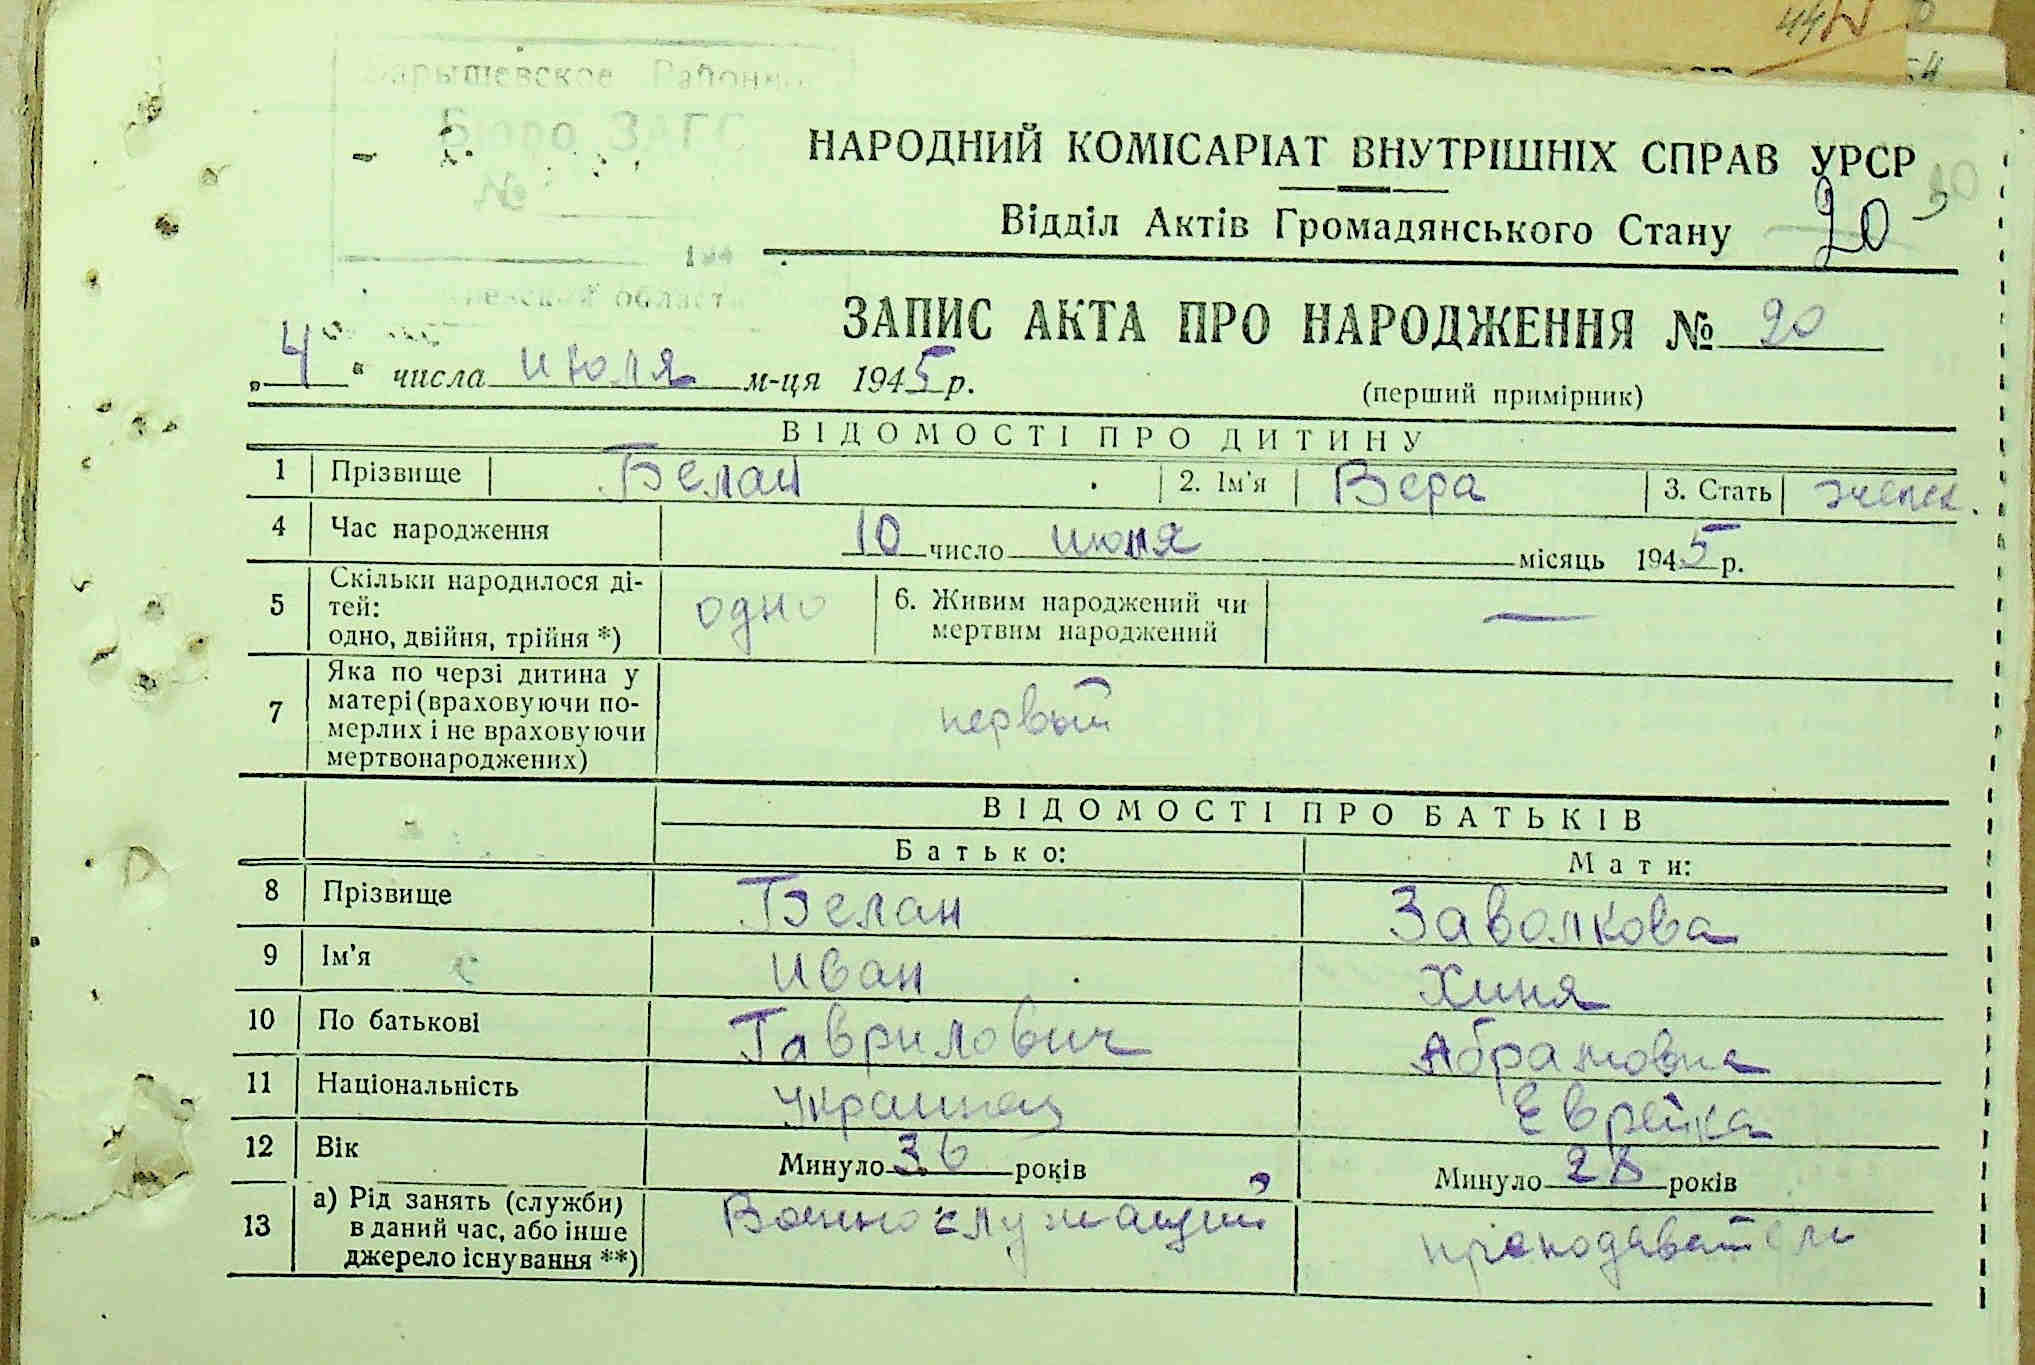 Барышевское Районн
Бюро ЗАГС
№
194
Киевской области
НАРОДНИЙ КОМІСАРІАТ ВНУТРІШНІХ СПРАВ УРСР
Відділ Актів Громадянського Стану 20
ЗАПИС АКТА ПРО НАРОДЖЕННЯ № 20
„4“ числа июля м-ця 1945 р. (перший примірник)
ВІДОМОСТІ ПРО ДИТИНУ
1 Прізвище Белан 2. Ім'я Вера 3. Стать женск.
4 Час народження 10 число июня місяць 1945 р.
5 Скільки народилося ді-
тей:
одно, двійня, трійня *) одно 6. Живим народжений чи
мертвим народжений —
7 Яка по черзі дитина у
матері (враховуючи по-
мерлих і не враховуючи
мертвонароджених) первый
ВІДОМОСТІ ПРО БАТЬКІВ
Батько: Мати:
8 Прізвище Белан Заволкова
9 Ім'я Иван Хиня
10 По батькові Гаврилович Абрамовна
11 Національність Украинец Еврейка
12 Вік Минуло 36 років Минуло 28 років
13 а) Рід занять (служби)
в даний час, або інше
джерело існування **) Военнослужащий преподаватель